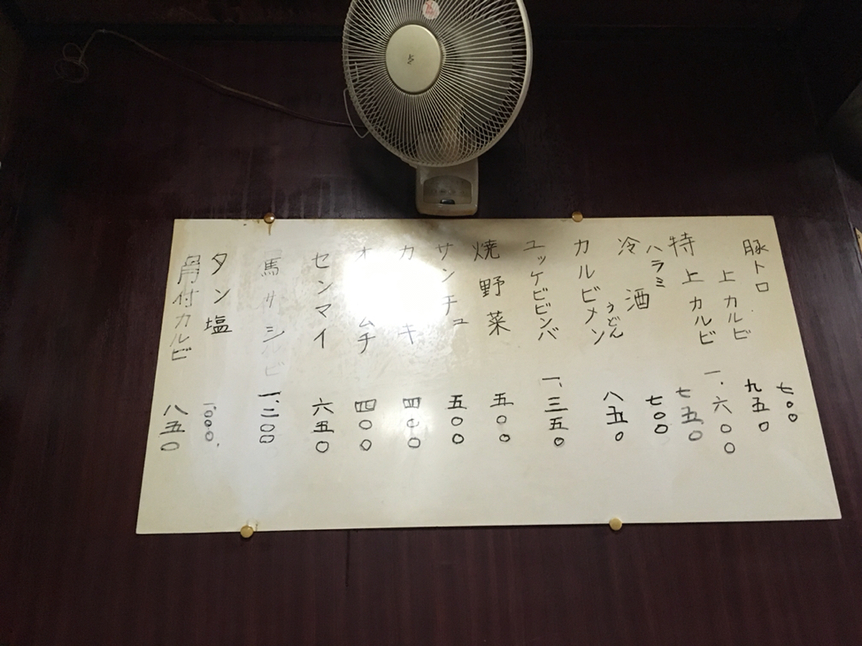 豚トロ 七〇〇
上カルビ 九五〇
特上カルビ 一、六〇〇
ハラミ 七五〇
冷酒 七〇〇
カルビメン うどん 八五〇
ユッケビビンバ 一、三五〇
焼野菜 五〇〇
サンチュ 五〇〇
四〇〇
四〇〇
センマイ 六五〇
馬サシ 一、二〇〇
タン塩 1,000
骨付カルビ 八五〇